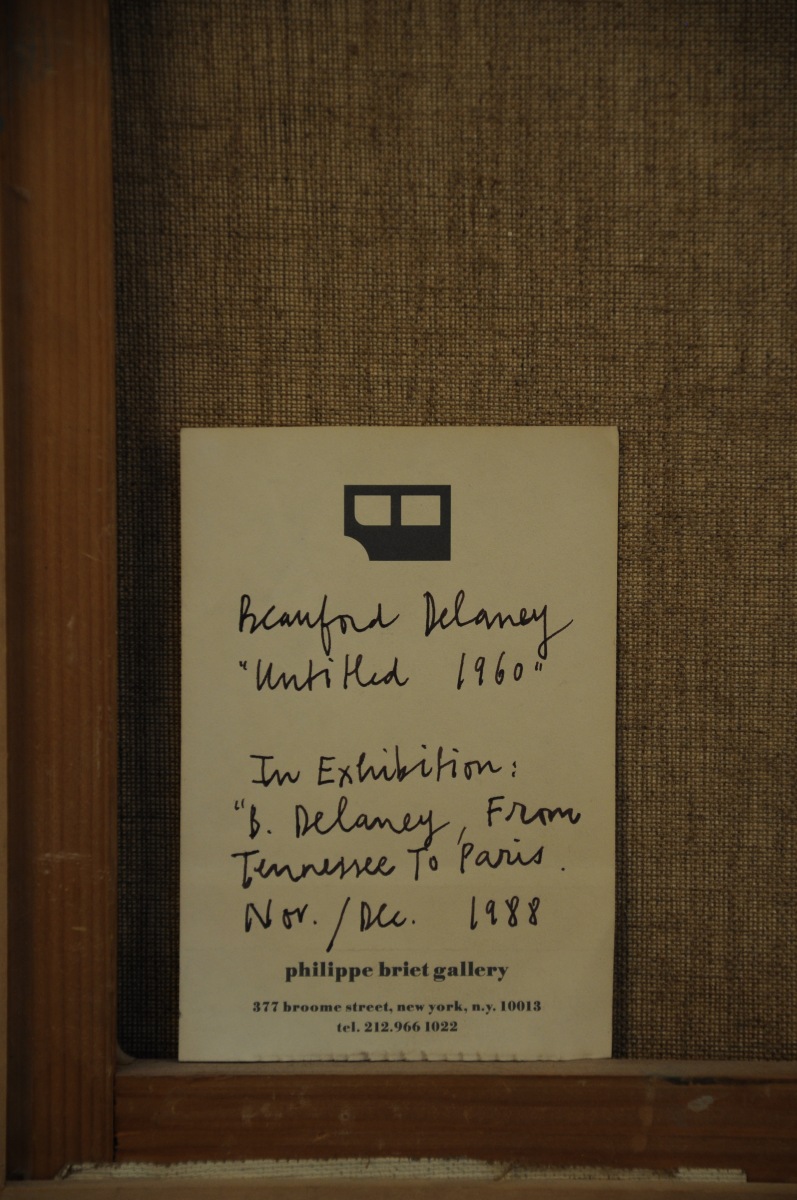 Beauford Delaney
"Untitled 1960"
In Exhibition:
"B. Delaney, From
Tennessee To Paris.
Nov. / Dec. 1988
philippe briet gallery
377 broome street, new york, n.y. 10013
tel. 212.966 1022